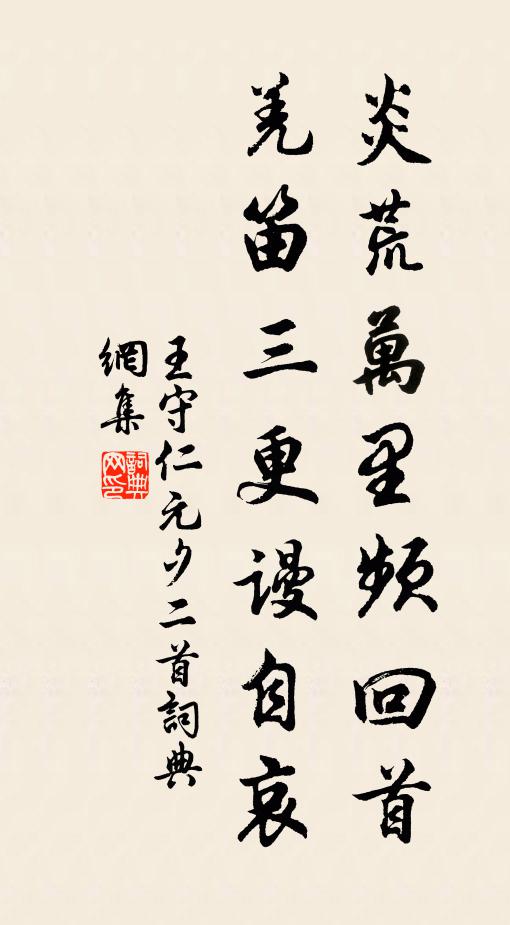 炎荒萬里頻回首
羌笛三更謾自哀
王守仁元夕二首詞典
網集
詞典网印